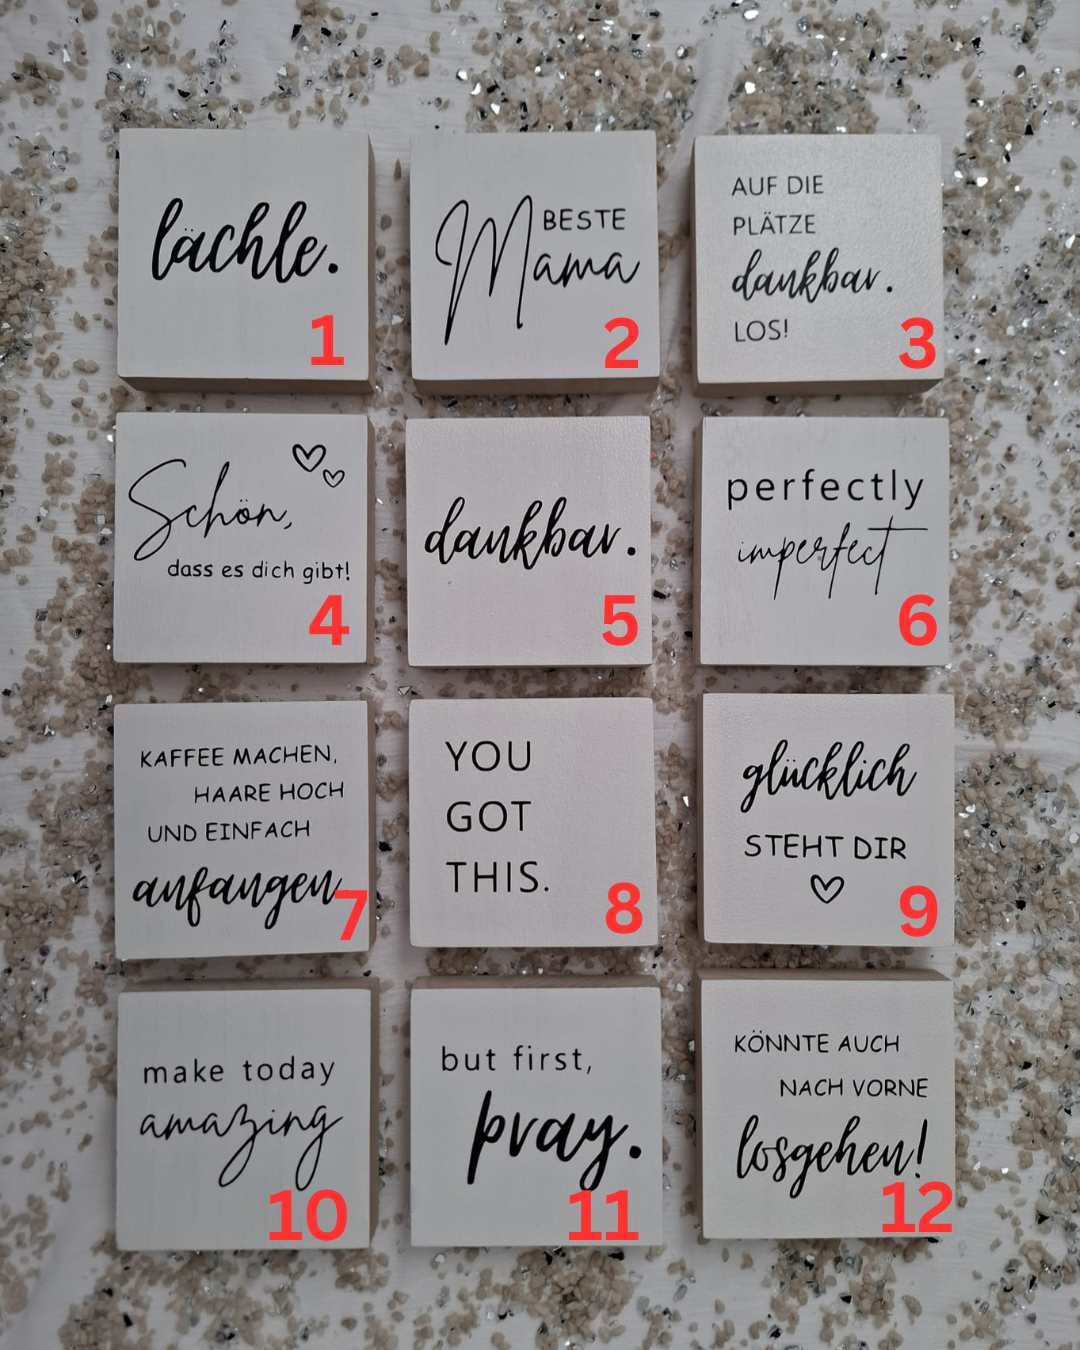 lächle.
1
BESTE
Mama
2
AUF DIE
PLÄTZE
dankbar.
LOS!
3
Schön,
dass es dich gibt!
4
dankbar.
5
perfectly
imperfect
6
KAFFEE MACHEN,
HAARE HOCH
UND EINFACH
anfangen
7
YOU
GOT
THIS.
8
glücklich
STEHT DIR
9
make today
amazing
10
but first,
pray.
11
KÖNNTE AUCH
NACH VORNE
losgehen!
12